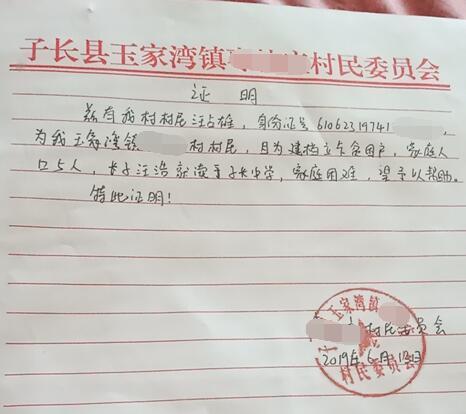 子长县玉家湾镇 村民委员会
证明
兹有我村村民汪占雄，身份证号61062319741
为我玉家湾镇 村村民，且为建档立卡贫困户，家庭人
口5人，长子汪浩就读于子长中学，家庭困难，望予以帮助。
特此证明！
玉家湾镇
村民委员会
2019年6月18日
村民委员会